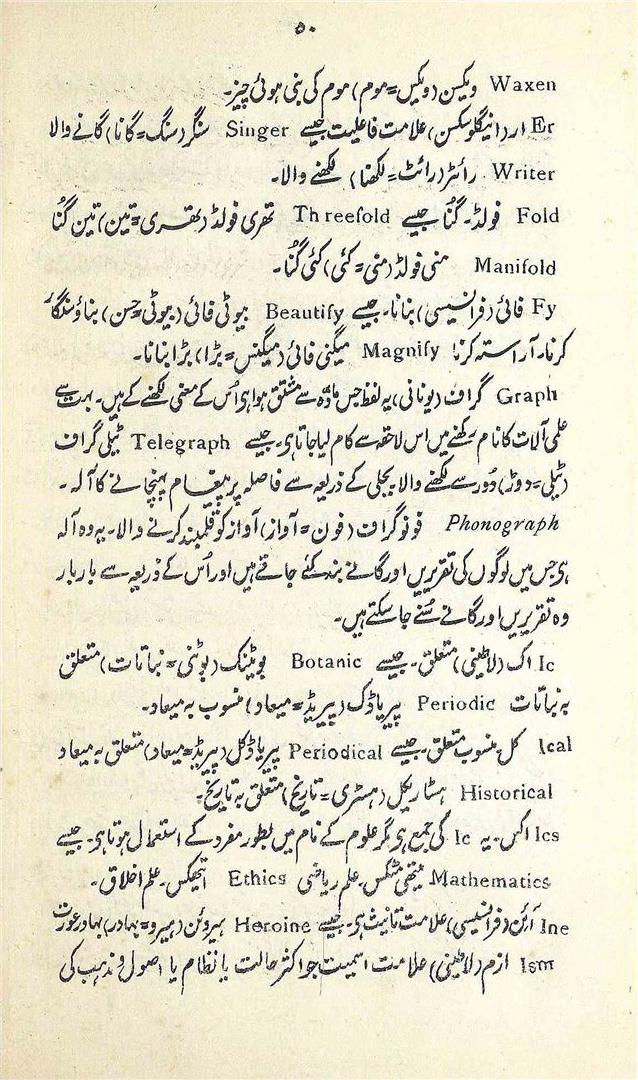 ۵۰
Waxen ویکسن (ویکس=موم) موم کی بنی ہوئی چیز۔
Er ار (اینگلوسکسن) علامت فاعلیت جیسے Singer سنگر (سنگ=گانا) گانے والا
Writer رائٹر (رائٹ=لکھنا) لکھنے والا۔
Fold فولڈ۔ گُنا جیسے Threefold تھری فولڈ (تھری=تین) تین گُنا
Manifold منی فولڈ (منی=کئی) کئی گُنا۔
Fy فائی (فرانسیسی) بنانا۔ جیسے Beautify بیوٹی فائی (بیوٹی=حسن) بناؤ سنگار
کرنا۔ آراستہ کرنا Magnify میگنی فائی (میگنس=بڑا) بڑا بنانا۔
Graph گراف (یونانی) یہ لفظ جس مادّہ سے مشتق ہوا ہی اُس کے معنی لکھنے کے ہیں۔ بہت سے
علمی آلات کا نام رکھنے میں اس لاحقہ سے کام لیا جاتا ہی۔ جیسے Telegraph ٹیلی گراف
(ٹیلی=دور) دُور سے لکھنے والا بجلی کے ذریعہ سے فاصلہ پر پیغام پہنچانے کا آلہ۔
Phonograph فونوگراف (فون=آواز) آواز کو قلمبند کرنے والا۔ یہ وہ آلہ
ہی جس میں لوگوں کی تقریریں اور گانے بند کئے جاتے ہیں اور اُس کے ذریعہ سے بار بار
وہ تقریریں اور گانے سُنے جا سکتے ہیں۔
Ic اک (لاطینی) متعلق۔ جیسے Botanic بوٹینک (بوٹنی=نباتات) متعلق
بہ نباتات Periodic پیریاڈک (پیریڈ=میعاد) منسوب بہ میعاد۔
Ical کل منسوب متعلق۔ جیسے Periodical پیریاڈکل (پیریڈ=میعاد) متعلق بہ میعاد
Historical ہسٹاریکل (ہسٹری=تاریخ) متعلق بہ تاریخ۔
Ics اکس۔ یہ Ic کی جمع ہی مگر علوم کے نام میں بطور مفرد کے استعمال ہوتا ہی۔ جیسے
Mathematics میتھی مٹکس۔ علم ریاضی Ethics اتھیکس۔ علم اخلاق۔
Ine آئن (فرانسیسی) علامت تانیث ہی۔ جیسے Heroine ہیروئن (ہیرو=بہادر) بہادر عورت
Ism ازم (لاطینی) علامت اسمیت جو اکثر حالت یا نظام یا اصول و مذہب کی